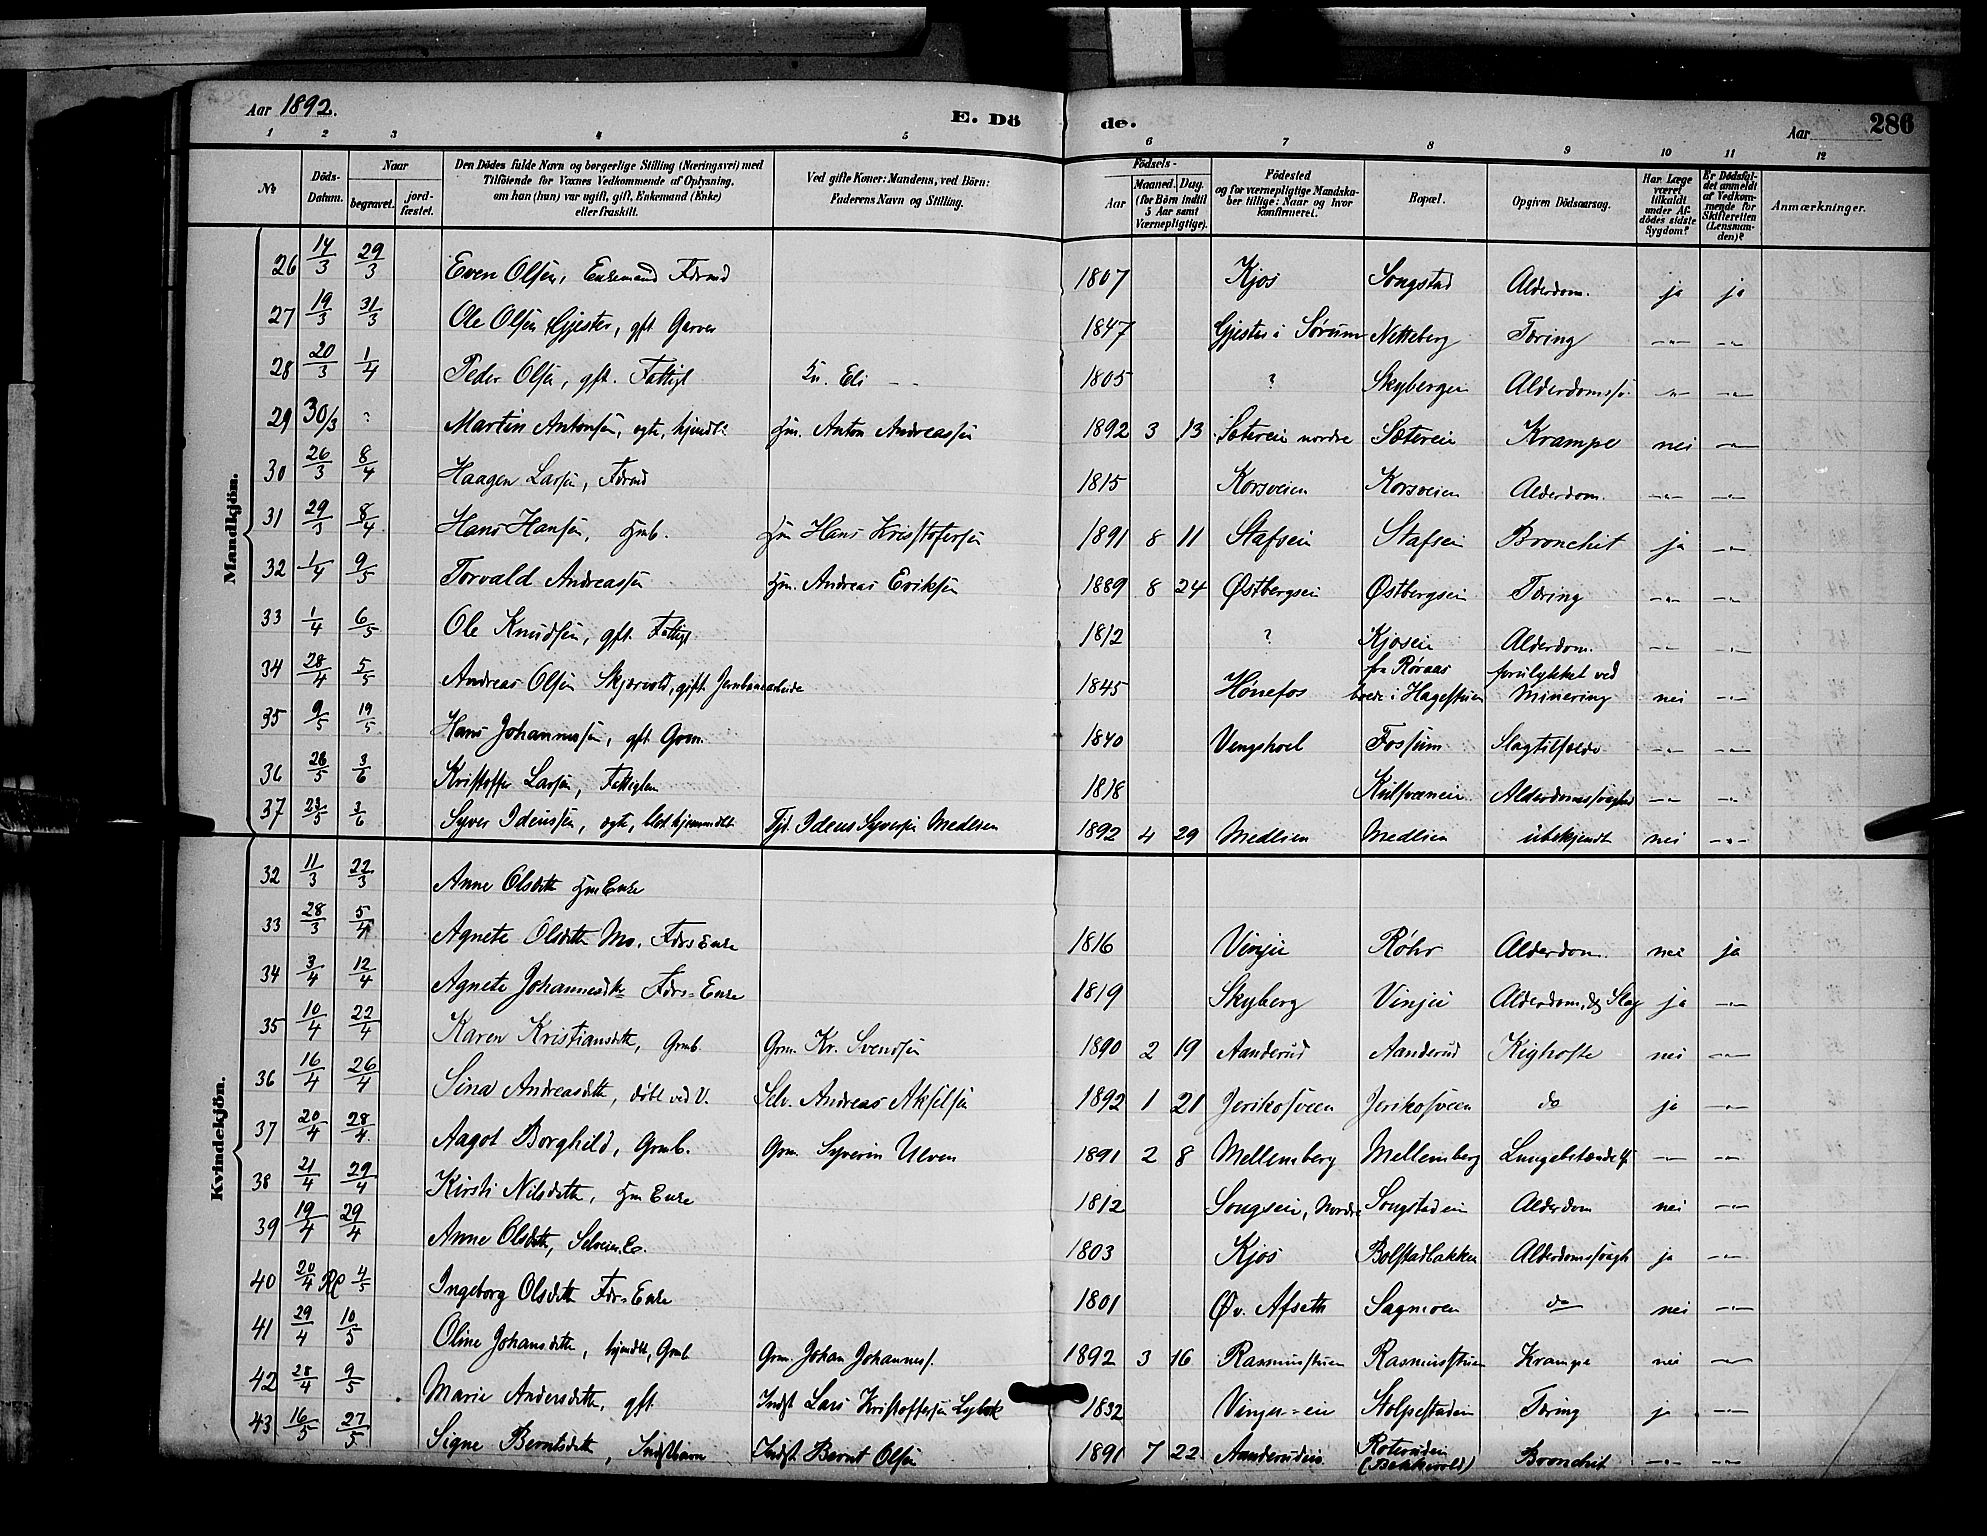 Aar 1892.
E. Dö
de.
Aar
286
1 2 3 4 5 6 7 8 9 10 11 12
No
Döds-Datum.
Naar
begravet.
jord-fæstet.
Den Dödes fulde Navn og borgerlige Stilling (Næringsvei) med
Tilföiende for Voxnes Vedkommende af Oplysning,
om han (hun) var ugift, gift, Enkemand (Enke)
eller fraskilt.
Ved gifte Koner: Mandens, ved Börn:
Faderens Navn og Stilling.
Födsels-
Aar
Maaned. Dag.
(for Börn indtil
5 Aar samt
Værnepligtige).
Födested
og for værnepligtige Mandska-
ber tillige: Naar og hvor
konfirmeret.
Bopæl.
Opgiven Dödsaarsag.
Har Læge
været
tilkaldt
under Af-
dödes sidste
Sygdom?
Er Dödsfal-
det anmeldt
af Vedkom-
mende for
Skifteretten
(Lensman-
den)?
Anmærkninger.
Mandkjön.
26 14/3 29/3 Even Olsen, Enkemand Fdrmd 1807 Kjos Songstad Alderdom. ja ja
27 19/3 31/3 Ole Olsen Gjester, gft. Garver 1847 Gjester i Sørum Netteberg Tæring -"- -"-
28 20/3 1/4 Peder Olsen, gft. Fattigl Kn. Eli 1805 ? Skybergei Alderdomssv. -"- -"-
29 30/3 ? Martin Antonsen, egte, hjemdt. Hm. Anton Andreassen 1892 3 13 Sætereie nordre Sætereie Krampe nei -"-
30 26/3 8/4 Haagen Larsen, Fdrmd 1815 Korsveien Korsveien Alderdom. -"- -"-
31 29/3 8/4 Hans Hansen, Hmb. Hm Hans Kristofersen 1891 8 11 Stafsei Stafsei Bronchit ja -"-
32 1/4 9/5 Torvald Andreassen Hm. Andreas Eriksen 1889 8 24 Østbergsei Østbergsei Tæring -"- -"-
33 1/4 6/5 Ole Knudsen, gft. Fattigl 1812 ? Kjosei Alderdom. -"- -"-
34 28/4 5/5 Andreas Olsen Skjærvold, gift. Jernbanearbeide 1845 Hønefos fra Røraas boede i Hagestuen forulykket ved Minering nei -"-
35 9/5 19/5 Hans Johannessen, gft Grm. 1840 Vengskoel Fossum Slagtilfælde -"- -"-
36 26/5 3/6 Kristoffer Larsen, Fattiglem 1818 Alderdomssvaghed -"- -"-
37 23/5 3/6 Syver Ideussen, egte, blot hjemmedt Tjd. Ideus Syversen Medlien 1892 4 29 Medlien Medlien ubekjendt nei -"-
Kvindekjön.
32 11/3 22/3 Anne Olsdtr Hm Enke
33 28/3 5/4 Agnete Olsdtr Mo. Fdrs Enke 1816 Vinjei Røhr Alderdom. nei ja
34 3/4 12/4 Agnete Johannesdtr Fdrs=Enke 1819 Skyberg Vinjei Alderdom, og Slag ja -"-
35 10/4 22/4 Karen Kristiansdtr, Grmb. Grm. Kr. Svendsen 1890 2 19 Aanderud Aanderud Kighoste nei -"-
36 16/4 26/4 Sina Andreasdtr, døbt ved V. Selv. Andreas Akselsen 1892 1 21 Jerikosveen Jerikosveen do ja -"-
37 20/4 28/4 Aagot Borghild, Grmb. Grm. Syverin Ulven 1891 2 8 Mellemberg Mellemberg -"- -"-
38 21/4 29/4 Kirsti Nilsdtr, Hm Enke 1812 Songsei, Nordre Songstadei Alderdom nei -"-
39 19/4 29/4 Anne Olsdtr, Selveier.E. 1803 Kjos Bolstadbakken Alderdomssvagh ja -"-
40 20/4 4/5 Ingeborg Olsdtr Fdrs=Enke 1801 Øv. Afseth Sagmoen do nei -"-
41 29/4 10/5 Oline Johansdtr, hjemdt, Grmb Grm. Johan Johanness. 1892 3 16 Rasmusstuen Rasmusstuen Krampe nei -"-
42 28/4 9/5 Marie Andersdtr, gft. Indst Lars Kristoffersen 1832 Vinjer=eie Stolpestadei Tæring ja -"-
43 16/5 27/5 Signe Berntsdtr, Indstbarn Indst Bernt Olsen 1891 7 22 Aanderudeie Roterudei (Bækkevold) Bronchit -"- -"-